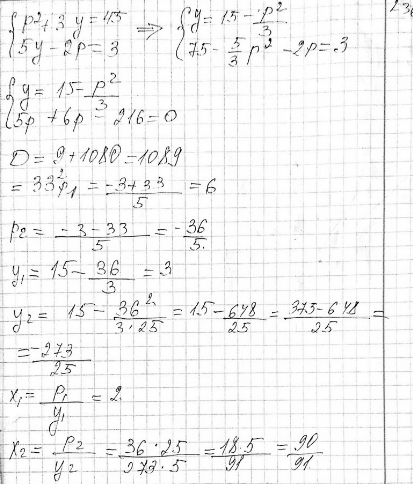 {p² + 3y = 45 ⇒ {y = 15 - p²/3
{5y - 2p = 3 {75 - 5/3 p² - 2p = 3
{y = 15 - p²/3
{5p + 6p - 216 = 0
D = 9 + 1080 = 1089
= 33² p₁ = (-3+33)/5 = 6
p₂ = (-3-33)/5 = -36/5.
y₁ = 15 - 36/3 = 3
y₂ = 15 - 36²/(3·25) = 15 - 648/25 = (375-648)/25 =
= -273/25
x₁ = p₁/y₁ = 2.
x₂ = p₂/y₂ = (36·25)/(273·5) = (18·5)/91 = 90/91